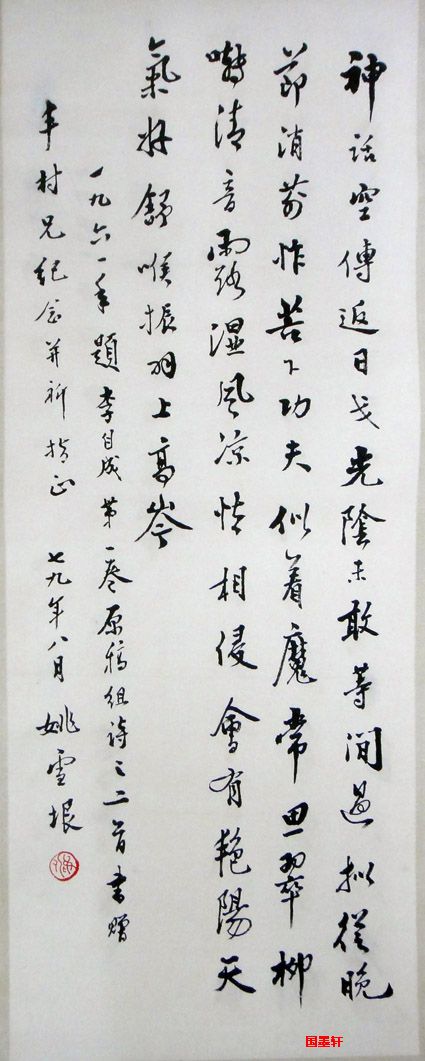 神話空傳返日戈光陰未敢等閒過拟從晚
節消前怍苦下功夫似着魔常思翠柳
囀清音露湿風凉怯相侵會有艷陽天
氣好舒喉振羽上高岑
一九六一年題李自成第一卷原稿組詩之二首書贈
丰村兄紀念并祈指正 七九年八月 姚雪垠
国墨轩